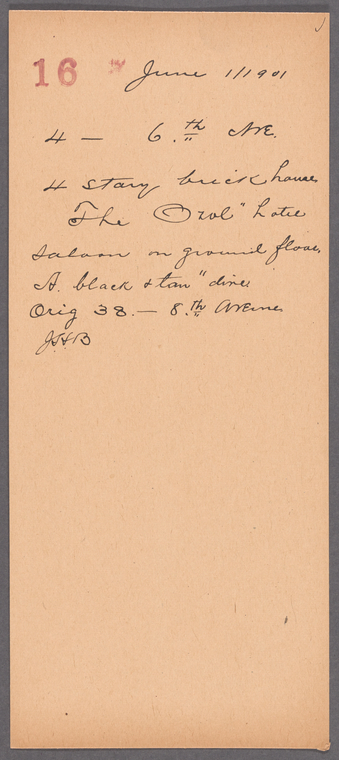 16 June 1/1901
4 — 6.th Ave.
4 story brick house
The Owl" hotel
saloon on ground floor,
A. black & tan" dive
Orig 38. — 8.th Avenue
J.H.B